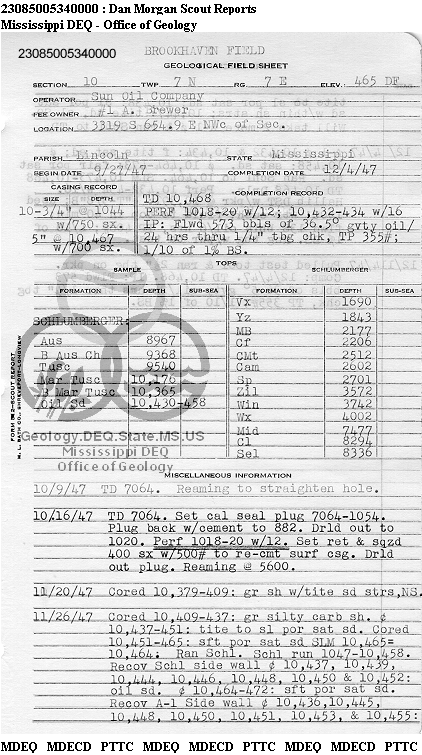 23085005340000 : Dan Morgan Scout Reports
Mississippi DEQ - Office of Geology
23085005340000
BROOKHAVEN FIELD
GEOLOGICAL FIELD SHEET
SECTION 10 TWP 7 N RG 7 E ELEV.: 465 DF
OPERATOR Sun Oil Company
FEE OWNER #1 A. Brewer
LOCATION 3319 S 654.9 E NWc of Sec.
PARISH Lincoln STATE Mississippi
BEGIN DATE 9/27/47 COMPLETION DATE 12/4/47
CASING RECORD COMPLETION RECORD
SIZE DEPTH TD 10,468
10-3/4" @ 1044 PERF 1018-20 w/12; 10,432-434 w/16
w/750 sx. IP: Flwd 573 bbls of 36.5° gvty oil/
5" @ 10,467 24 hrs thru 1/4" tbg chk, TP 355#;
w/700 sx. 1/10 of 1% BS.
TOPS
SAMPLE SCHLUMBERGER
FORMATION DEPTH SUB-SEA FORMATION DEPTH SUB-SEA
Vx 1690
Yz 1843
SCHLUMBERGER: MB 2177
Aus 8967 Cf 2206
B Aus Ch 9368 CMt 2512
Tusc 9540 Cam 2602
Mar Tusc 10,176 Sp 2701
B Mar Tusc 10,365 Zil 3572
Oil Sd 10,430-458 Win 3742
Wx 4002
Mid 7477
Cl 8294
Sel 8336
FORM W2-SCOUT REPORT
M. L. BATH CO., SHREVEPORT-LONGVIEW
Geology.DEQ.State.MS.US
Mississippi DEQ
Office of Geology
MISCELLANEOUS INFORMATION
10/9/47 TD 7064. Reaming to straighten hole.
10/16/47 TD 7064. Set cal seal plug 7064-1054.
Plug back w/cement to 882. Drld out to
1020. Perf 1018-20 w/12. Set ret & sqzd
400 sx w/500# to re-cmt surf csg. Drld
out plug. Reaming @ 5600.
11/20/47 Cored 10,379-409: gr sh w/tite sd strs,NS.
11/26/47 Cored 10,409-437: gr silty carb sh. ¢
10,437-451: tite to sl por sat sd. Cored
10,451-465: sft por sat sd SLM 10,465=
10,464. Ran Schl. Schl run 1047-10,458.
Recov Schl side wall ¢ 10,437, 10,439,
10,444, 10,446, 10,448, 10,450 & 10,452:
oil sd. ¢ 10,464-472: sft por sat sd.
Recov A-1 Side Wall ¢ 10,436,10,445,
10,448, 10,450, 10,451, 10,453, & 10,455:
MDEQ MDECD PTTC MDEQ MDECD PTTC MDEQ MDECD PTTC MDEQ MDECD